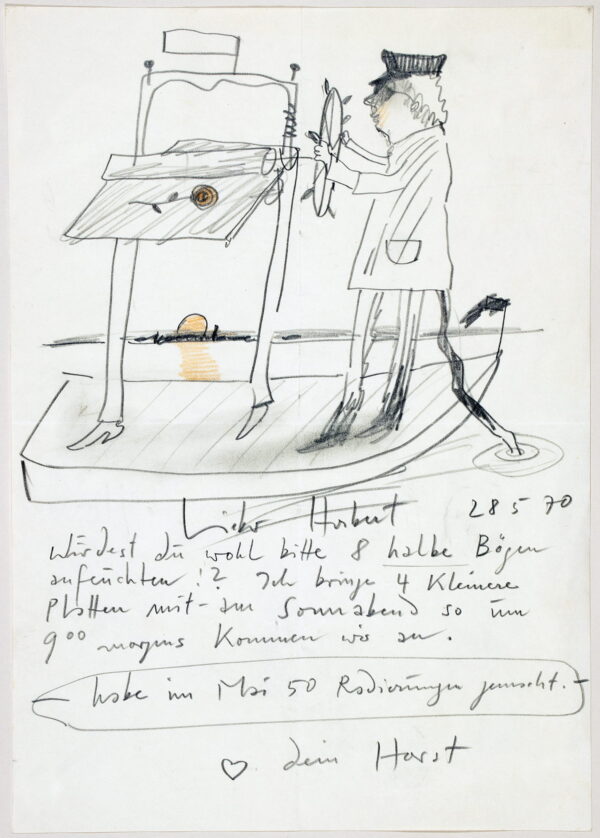 Lieber Herbert 28 5 70
Würdest du wohl bitte 8 halbe Bögen
anfeuchten!? Ich bringe 4 kleinere
Platten mit - am Sonnabend so um
9⁰⁰ morgens kommen wir an.
habe im Mai 50 Radierungen gemacht.
♡ dein Horst